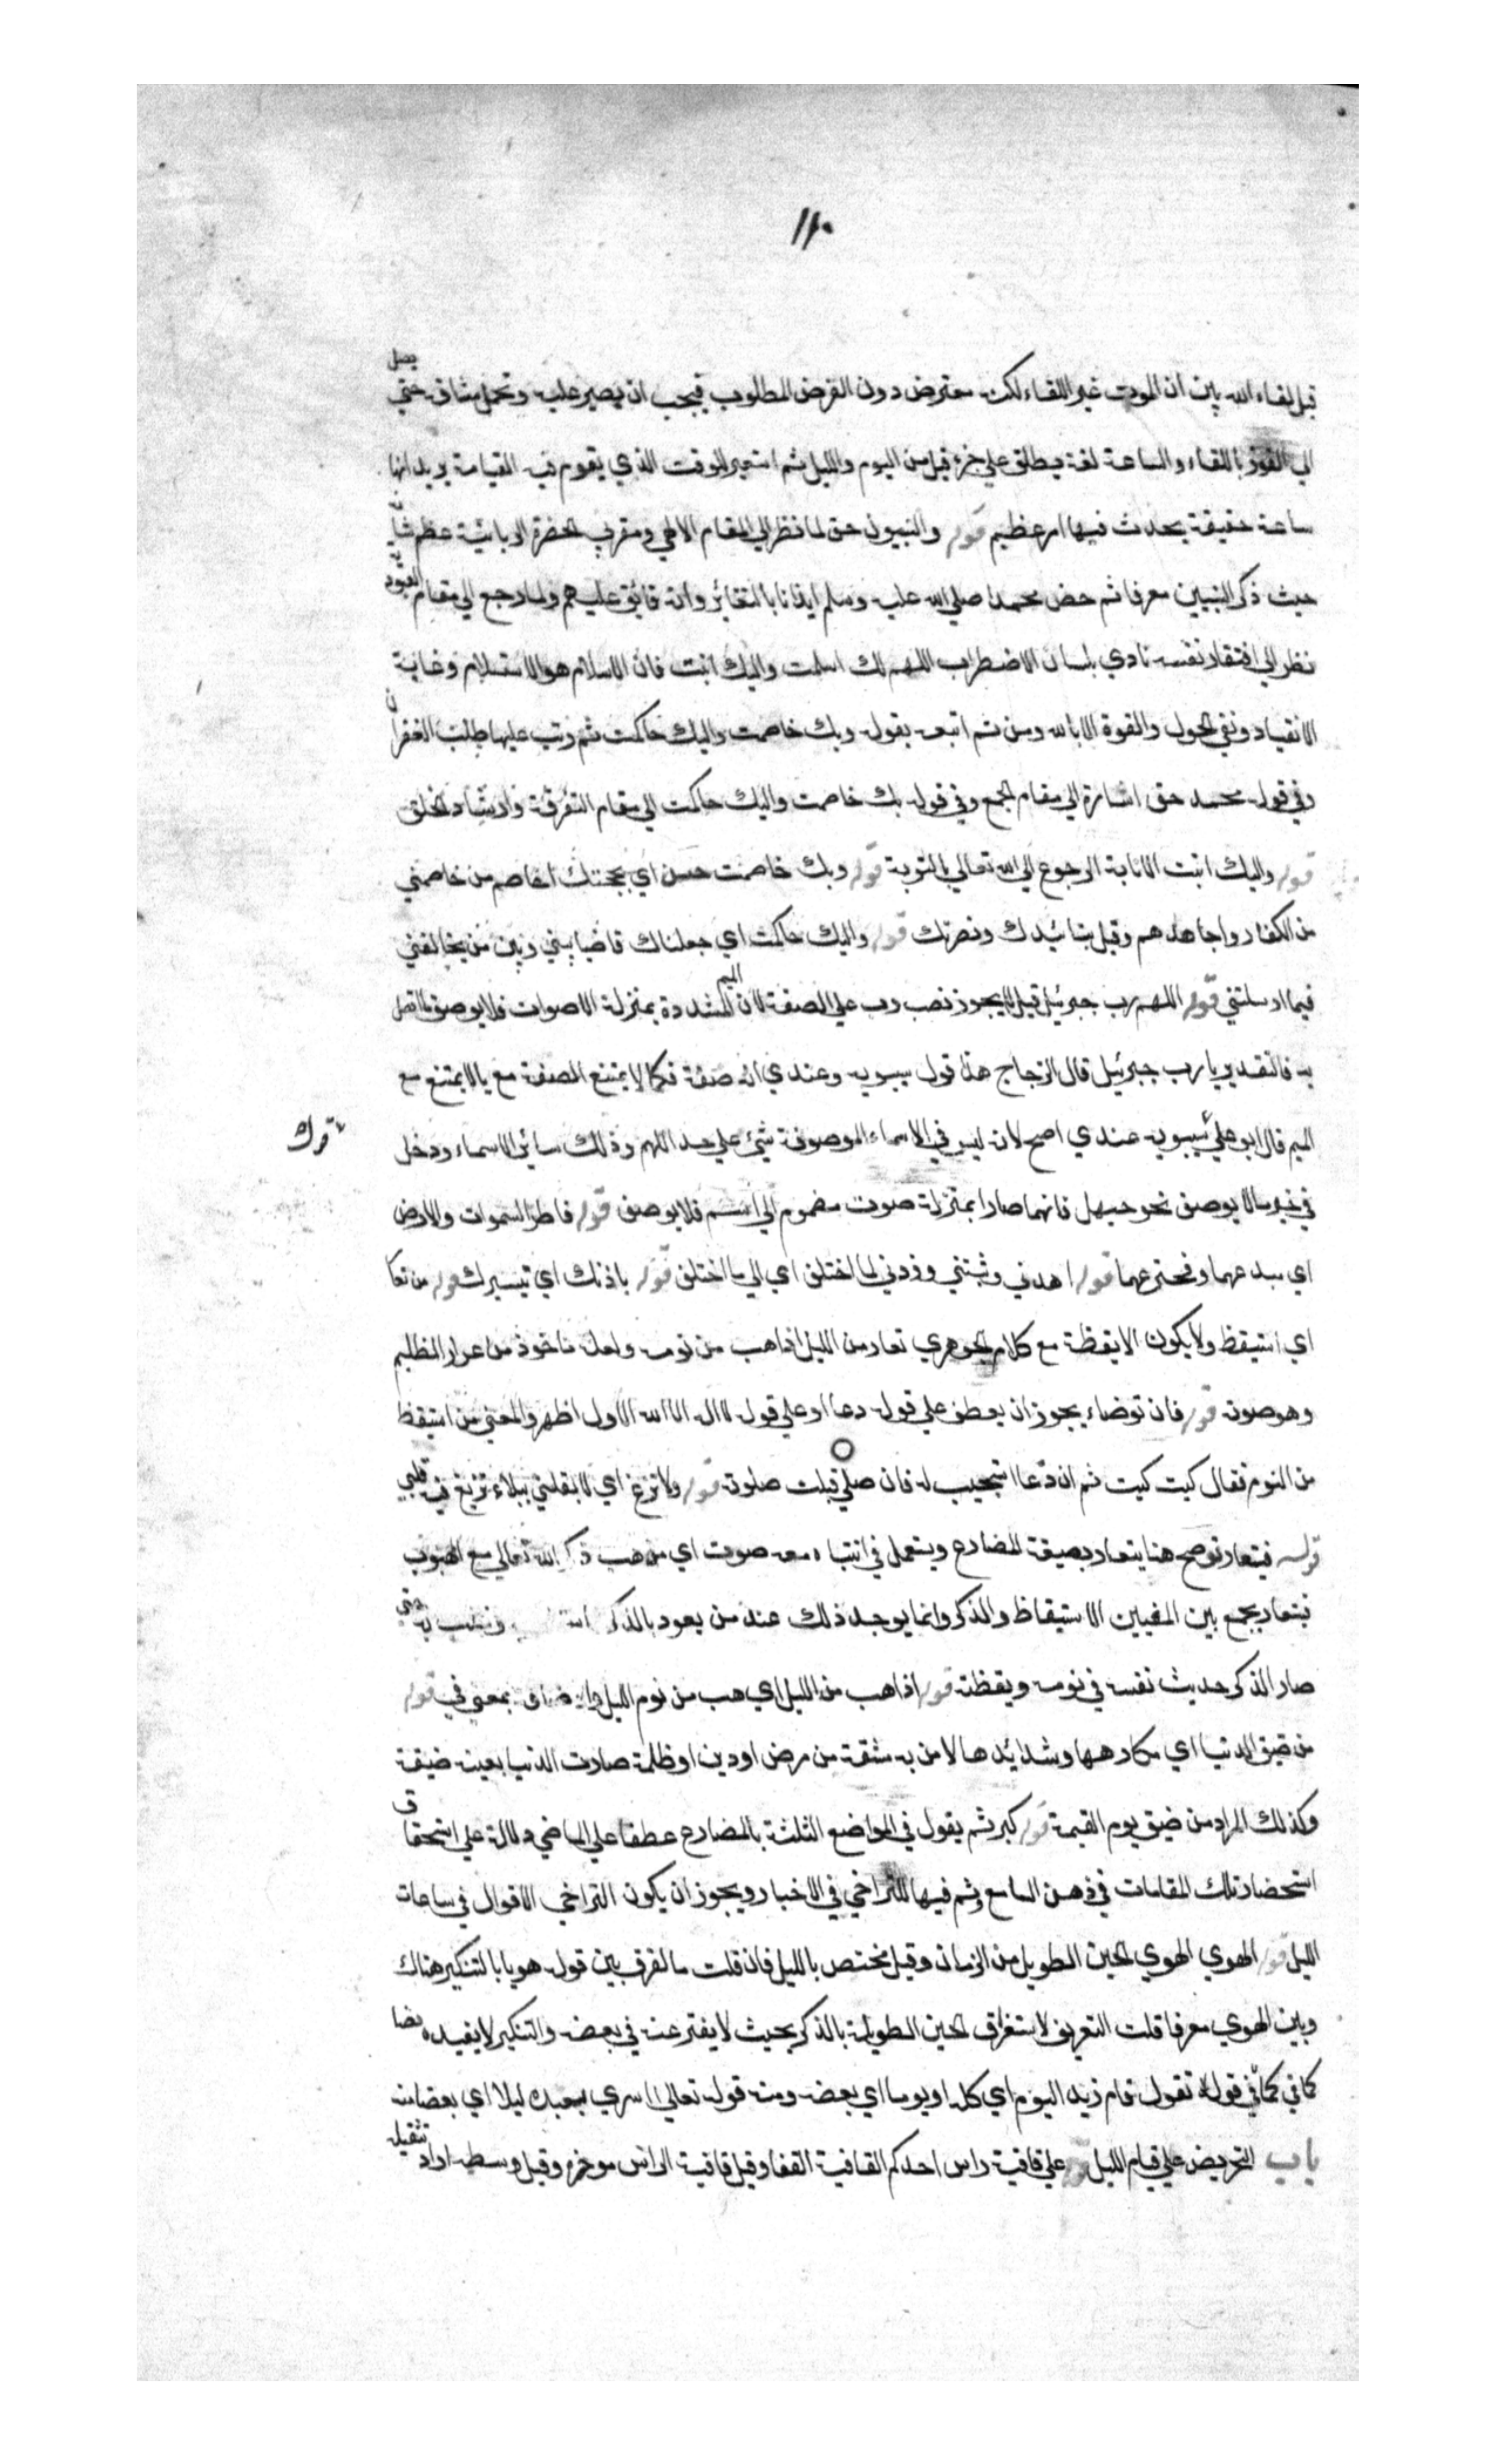 ١١٠
قبل لقاء الله بين ان الموت غير اللقاء لكنه معترض دون الفرض المطلوب فيجب ان يصبر عليه وتحمل مشاقه حتى يصل
الي الفوز باللقاء والساعة لغة يطلق علي جزء قبل من اليوم والليل ثم استعير للوقت الذي يقوم فيه القيامة يريد انها
ساعة خفيفة يحدث فيها امر عظيم قوله والنبيون حق لما نظر الي المقام الالهي ومقربي الحضرة الربانية عظم شانه
حيث ذكر النبيين معرفا ثم خص محمدا صلي الله عليه وسلم ايذانا بالتغائر وانه فائق عليهم ولما رجع الي مقام العبودية
نظر الي افتقار نفسه نادي بلسان الاضطراب اللهم لك اسلمت واليك انبت فان الاسلام هو الاستسلام وغاية
الانقياد ونفي الحول والقوة الا بالله ومن ثم اتبعه بقوله وبك خاصمت واليك حاكمت ثم رتب عليها طلب الغفران
وفي قوله محمد حق اشارة الي مقام الجمع وفي قوله بك خاصمت واليك حاكمت الي مقام التفرقة وارشاد الخلق
قوله واليك انبت الانابة الرجوع الي الله تعالي بالتوبة قوله وبك خاصمت حسن اي بحجتك اخاصم من خاصمني
من الكفار واجاهدهم وقيل بتائيدك ونصرتك قوله واليك حاكمت اي جعلناك قاضيا بيني وبين من يخالفني
فيما ارسلتني قوله اللهم رب جبرئيل قيل لا يجوز نصب رب علي الصفة لان الميم المشددة بمنزلة الاصوات فلا يوصف ما اتصل
به فالتقدير يا رب جبرئيل قال الزجاج هذا قول سيبويه وعندي انه صفة فكما لا يمتنع الصفة مع يا لا يمتنع مع
الميم قال ابو علي سيبويه عندي اصح لانه ليس في الاسماء الموصوفة شئ علي حد اللهم وذلك سائر الاسماء ودخل
في خبر ما لا يوصف نحو حيهل فانهما صارا بمنزلة صوت مضموم الي اسم فلا يوصف قوله فاطر السموات والارض
اي مبدعهما ومخترعهما قوله اهدني وثبتني وزدني لما اختلف اي الي ما اختلف قوله باذنك اي تيسيرك قوله من تعا
اي استيقظ ولا يكون الا يقظة مع كلام الجوهري تعار من الليل اذا هب من نومه ولعله ماخوذ من عرار الظليم
وهو صوته قوله فان توضاء يجوز ان يعطف علي قوله دعا او علي قوله لا اله الا الله الاول اظهر والمعني من استيقظ
من النوم فقال كيت كيت ثم ان دعا استجيب له فان صلي قبلت صلوته قوله ولا تزغ اي لا تبلني ببلاء تزيغ فيه قلبي
قوله فيتعار توضح هنا يتعار بصيغة المضارع ويستعمل في انتباه معه صوت اي من هب ذكر الله تعالي مع الهبوب
فيتعار يجمع بين المعنيين الاستيقاظ والذكر وانما يوجد ذلك عند من يعود بالذكر به حتي
صار الذكر حديث نفسه في نومه ويقظته قوله اذا هب من الليل اي هب من نوم الليل بمعني في قوله
من ضيق الدنيا اي مكارهها وشدائدها لان من به مشقة من مرض او دين او ظلمة صارت الدنيا بعينه ضيقة
وكذلك المراد من ضيق يوم القيمة قوله كبر ثم يقول في المواضع الثلثة بالمضارع عطفا علي الماضي دلالة علي استحقاق
استحضار تلك المقامات في ذهن السامع وثم فيها للتراخي في الاخبار ويجوز ان يكون التراخي الاقوال في ساعات
الليل قوله الهوي الهوي الحين الطويل من الزمان وقيل مختص بالليل فان قلت ما الفرق بين قوله هويا بالتنكير هناك
وبين الهوي معرفا قلت التعريف لاستغراق الحين الطويل بالذكر بحيث لا يفتر عنه في بعضه والتنكير لا يفيده نصا
كما في كما في قوله تقول قام زيد اليوم اي كله او يوما اي بعضه ومنه قوله تعالي اسري بعبده ليلا اي بعضا منه
باب التحريض علي قيام الليل قوله علي قافية راس احدكم القافية القفا وقيل قافية الراس موخره وقيل وسطه اراد تثقيله